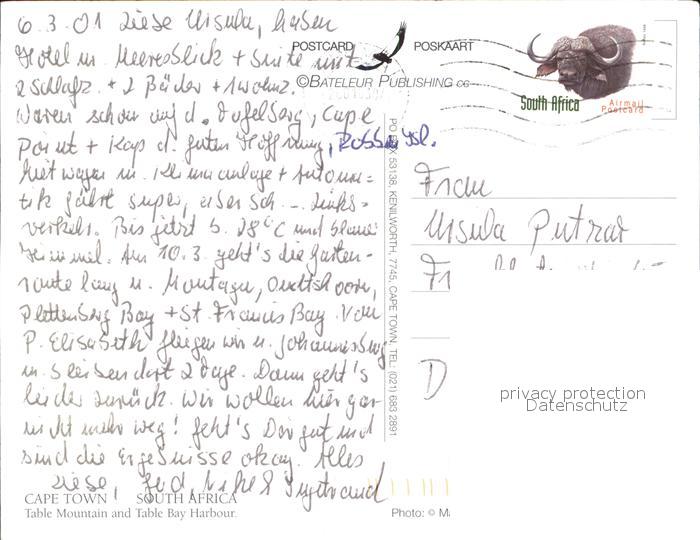 6.3.01 Liebe Ursula, haben
Hotel m. Meeresblick + Suite mit
2 Schlafz. + 2 Bäder + 1 Wohnz.
Waren schon auf d. Tafelberg, Cape
Point + Kap d. guten Hoffnung, Robben Isl.
Mietwagen m. Klimaanlage + Automa=
tik fährt super, aber sch... Links-
verkehr. Bis jetzt b. 28°C und blauer
Himmel. Am 10.3. geht's die Garten-
route lang n. Montagu, Oudtshoorn,
Plettenberg Bay + St. Francis Bay. Von
P. Elisabeth fliegen wir n. Johannisburg
u. bleiben dort 2 Tage. Dann geht's
leider zurück. Wir wollen hier gar
nicht mehr weg! Geht's Dir gut und
sind die Ergebnisse okay. Alles
Liebe,
POSTCARD POSKAART
©BATELEUR PUBLISHING CC
PO BOX 53138, KENILWORTH, 7745, CAPE TOWN, TEL: (021) 683 2891
South Africa
Airmail
Postcard
Frau
Ursula
Fr
D
privacy protection
Datenschutz
CAPE TOWN SOUTH AFRICA
Table Mountain and Table Bay Harbour.
Photo: © M